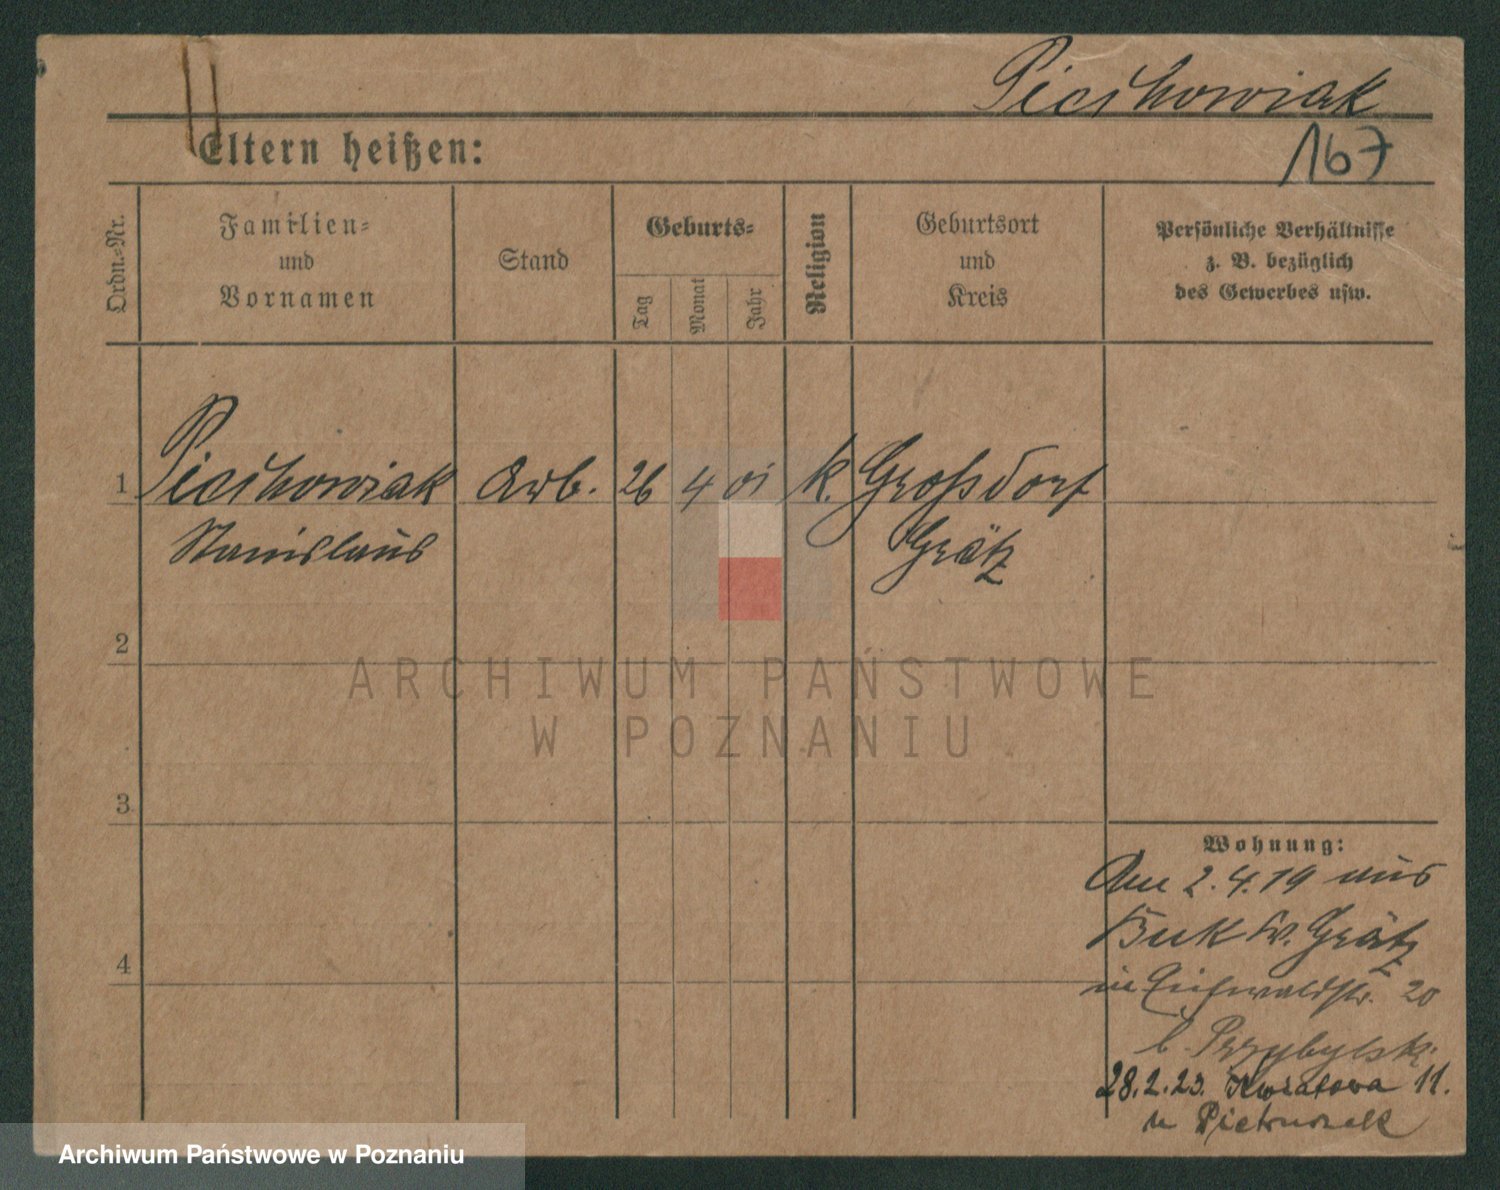 Piechowiak
167
Eltern heißen:
Ordn.-Nr.
Familien-
und
Vornamen
Stand
Geburts-
Tag
Monat
Jahr
Religion
Geburtsort
und
Kreis
Persönliche Verhältnisse
z. B. bezüglich
des Gewerbes usw.
1 Piechowiak Arb. 26 4 01 k. Großdorf
Stanislaus Grätz
2
ARCHIWUM PAŃSTWOWE
W POZNANIU
3
Wohnung:
Am 2.4.19 aus
Buk Kr. Grätz
4
in Eichwaldstr. 20
b. Przybylski
28.2.23. Kwiatowa 11.
u Pietruszak
Archiwum Państwowe w Poznaniu